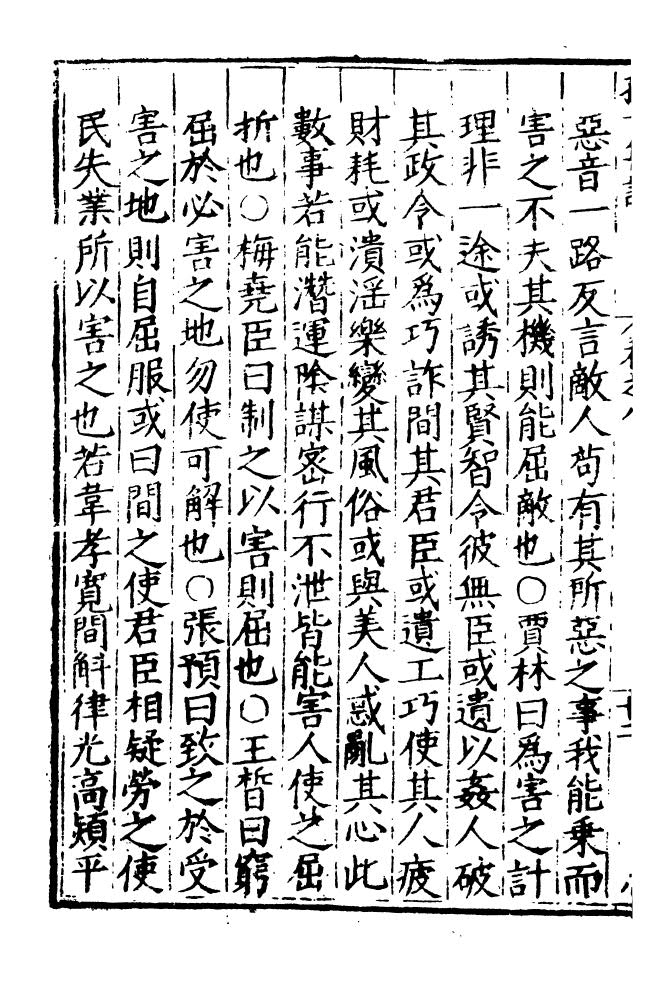 惡音一路反言敵人苟有其所惡之事我能乗而
害之不失其機則能屈敵也○賈林曰爲害之計
理非一途或誘其賢智令彼無臣或遺以姦人破
其政令或爲巧詐間其君臣或遺工巧使其人疲
財耗或潰淫樂變其風俗或與美人惑亂其心此
數事若能潛運陰謀密行不泄皆能害人使之屈
折也○梅堯臣曰制之以害則屈也○王晳曰窮
屈於必害之地勿使可解也○張預曰致之於受
害之地則自屈服或曰間之使君臣相疑勞之使
民失業所以害之也若韋孝寛間斛律光高熲平